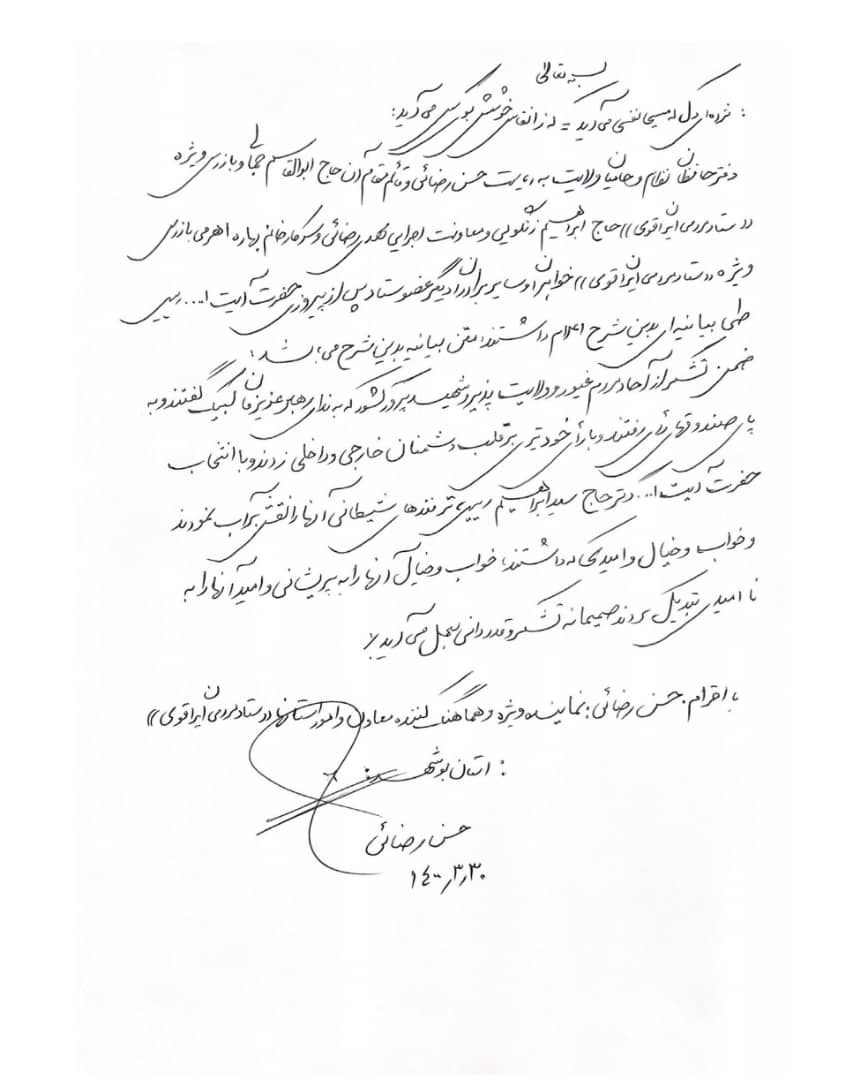 بسمه تعالی
: مژده ای دل که مسیحا نفسی می آید = که ز انفاس خوشش بوی کسی می آید:
دفتر حافظان نظام و حامیان ولایت به ریاست حسن رضائی و قائم مقام آن حاج ابوالقاسم جمالی و بازرس ویژه
((ستاد مردمی ایران قوی)) حاج ابراهیم زنگویی و معاونت اجرایی مهدی رضائی و سرکار خانم بهاره اهرمی بازرس
ویژه ((ستاد مردمی ایران قوی)) خواهران و سایر برادران دیگر عضو ستاد پس از پیروزی حضرت آیت ا... رییسی
طی بیانیه ای بدین شرح اعلام داشتند: متن بیانیه بدین شرح می باشد:
ضمن تشکر از آحاد مردم غیور و ولایت پذیر و شهید پرور کشور که به ندای رهبر عزیزمان لبیک گفتند و به
پای صندوقهای رأی رفتند و با رأی خود تیری بر قلب دشمنان خارجی و داخلی زدند و با انتخاب
حضرت آیت ا... دکتر حاج سید ابراهیم رییسی ترفندهای شیطانی آنها را نقش بر آب نمودند
و خواب و خیال و امیدی که داشتند، خواب و خیال آنها را به پریشانی و امید آنها را به
نا امیدی تبدیل کردند صمیمانه تشکر و قدردانی بعمل می آید.
با احترام. حسن رضائی: نماینده ویژه و هماهنگ کننده معادن و امور استانها ((ستاد مردمی ایران قوی))
: استان بوشهر
حسن رضائی
۱۴۰۰,۳,۳۰